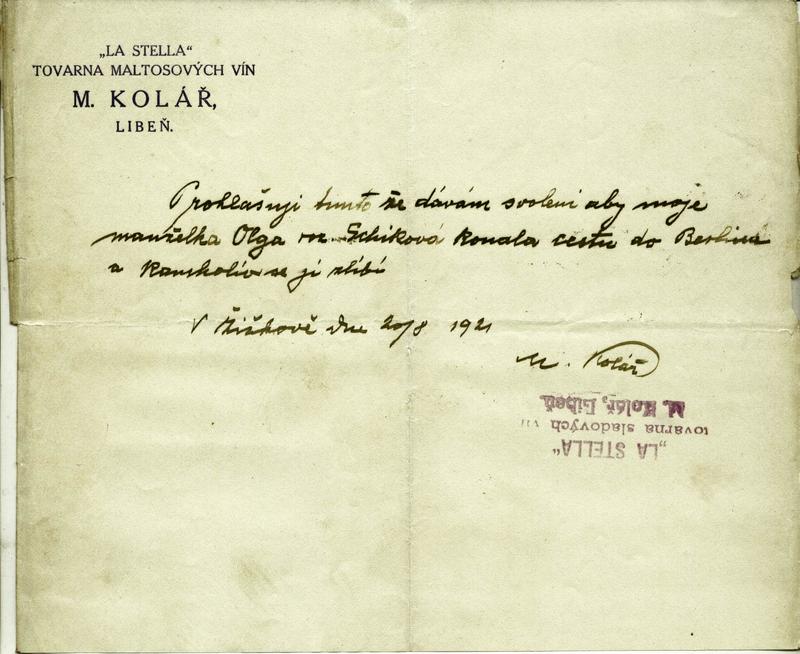 „LA STELLA“
TOVARNA MALTOSOVÝCH VÍN
M. KOLÁŘ,
LIBEŇ.
Prohlašuji tímto že dávám svolení aby moje
manželka Olga roz. Schiková konala cestu do Berlina
a kamkoliv se jí zlíbí
V Žižkově dne 20/8 1921
M. Kolář
„LA STELLA“
tovarna sladových vín
M. Kolář, Libeň.